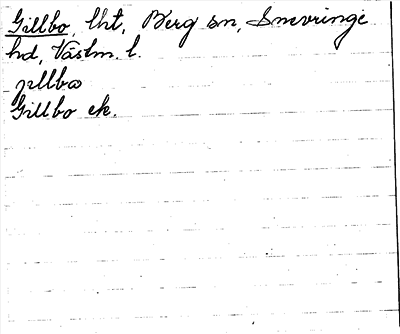 Gillbo, lht, Berg sn, Snevringe
hd, Västm. l.
jillbω
Gillbo ek.